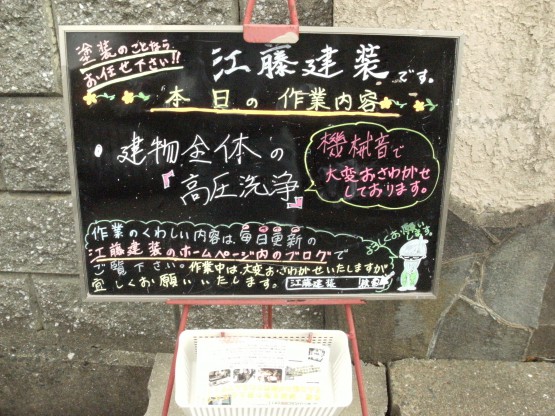 塗装のことなら
お任せ下さい!!
江藤建装です。
本日の作業内容
・建物全体の
『高圧洗浄』
機械音で
大変おさわがせ
しております。
作業のくわしい内容は、毎日更新の
江藤建装のホームページ内のブログで
ご覧下さい。作業中は、大変おさわがせいたしますが
宜しくお願いいたします。
江藤建装
よろしくお願い